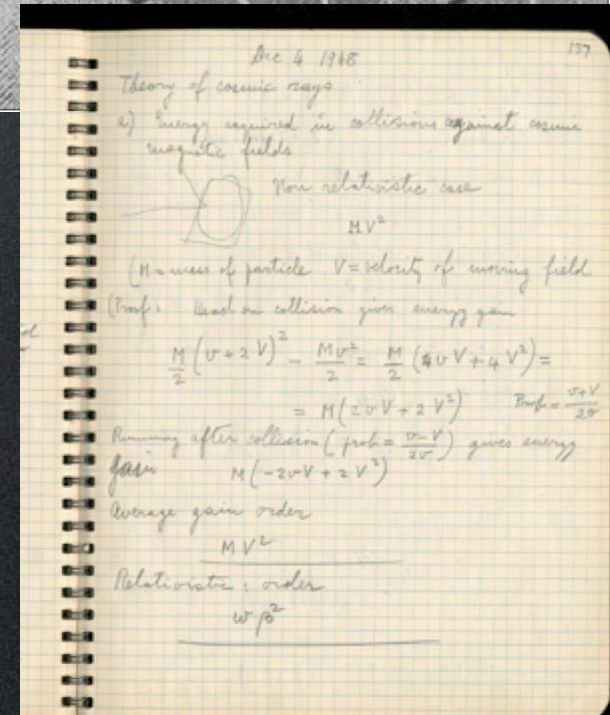 137
Dec 4 1948
Theory of cosmic rays
a) Energy acquired in collisions against cosmic
magnetic fields
Non relativistic case
MV²
(M = mass of particle V = velocity of moving field
(Proof: Head on collision gives energy gain
M/2 (v+2V)² − Mv²/2 = M/2 (4vV + 4V²) =
= M(2vV + 2V²) Prob = v+V/2v
Running after collision (prob = v−V/2v) gives energy
gain M(−2vV + 2V²)
Average gain order
MV²
Relativistic: order
wβ²